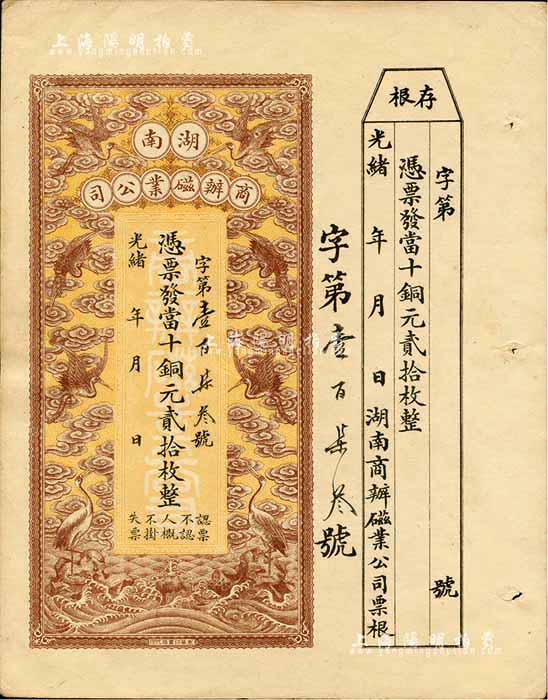 上海陽明拍賣
www.yangmingauction.com
存根
字第　號
憑票發當十銅元貳拾枚整
光緒　年　月　日湖南商辦磁業公司票根
字第壹百柒叁號
湖南
商辦磁業公司
字第壹百柒叁號
憑票發當十銅元貳拾枚整
光緒　年　月　日
認票不認人概不掛失票
上海陽明拍賣
www.yangmingauction.com